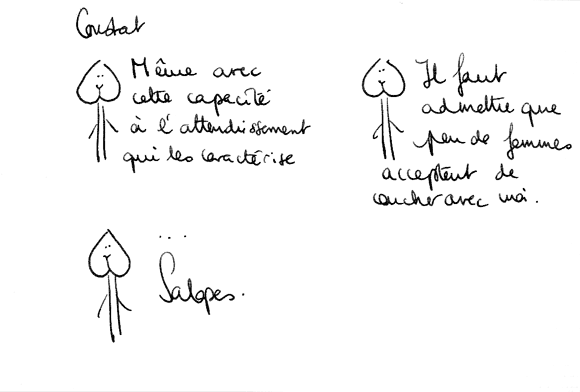 Constat
Même avec
cette capacité
à l'attendrissement
qui les caractérise
Il faut
admettre que
peu de femmes
acceptent de
coucher avec moi.
...
Salopes.